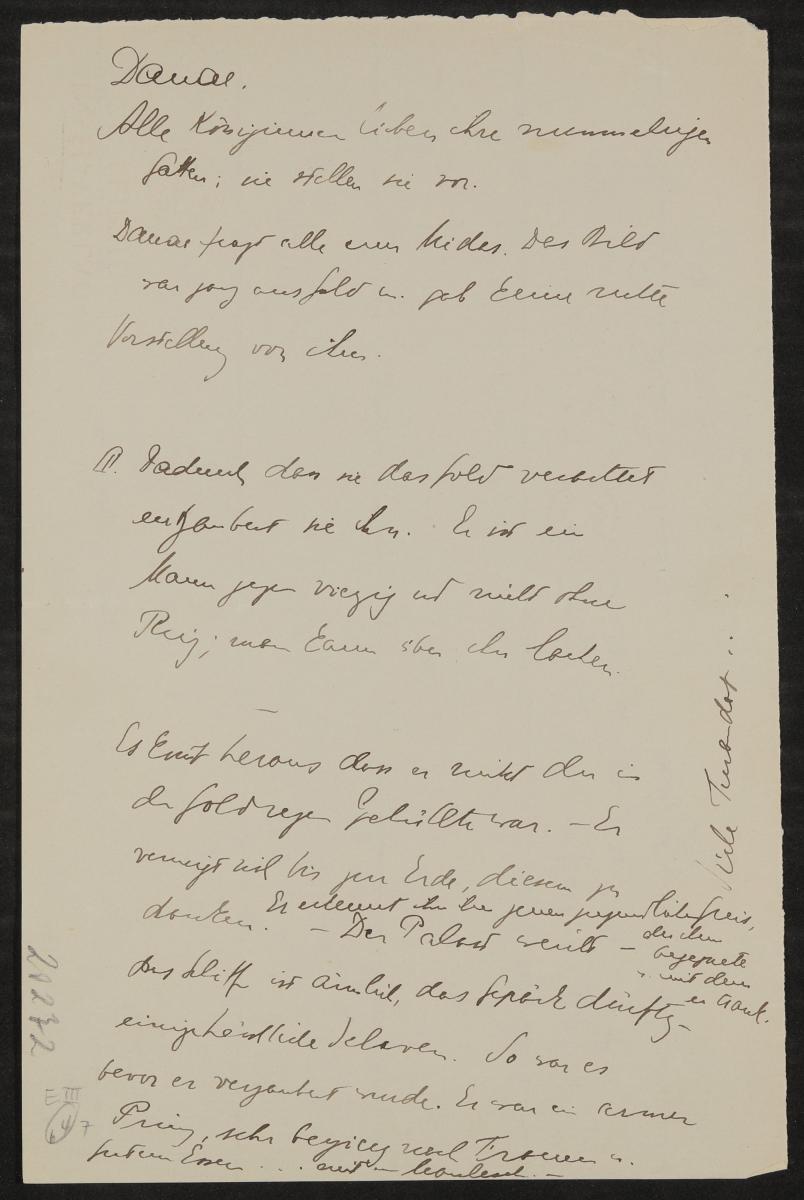 Danae.
Alle Königinnen lieben ihre nunmehrigen
Gatten; sie stellen sie vor.
Danae fragt alle nach Midas. Das Bild
war ganz aus Gold u. gab keine rechte
Vorstellung von ihm.
II. Dadurch dass sie das Gold verachtet
entzaubert sie ihn. Er ist ein
Mann gegen vierzig und nicht ohne
Reiz; man kann über ihn lachen.
Es kommt heraus dass er nicht der in
den Goldregen Gehüllte war. – Er
verneigt sich bis zur Erde, diesem zu
danken. Er erkennt ihn
den jenen
der ihm
begegnete
u. mit dem
er trank.
– Der Palast weicht –
das Schiff ist ärmlich, das Gepäck dürftig –
einige hässliche Sclaven. So war es
bevor er verzaubert wurde. Er war ein armer
Prinz, sehr begierig nach Frauen u.
gutem Essen . . .
siehe Turandot . . .
20272
III
7